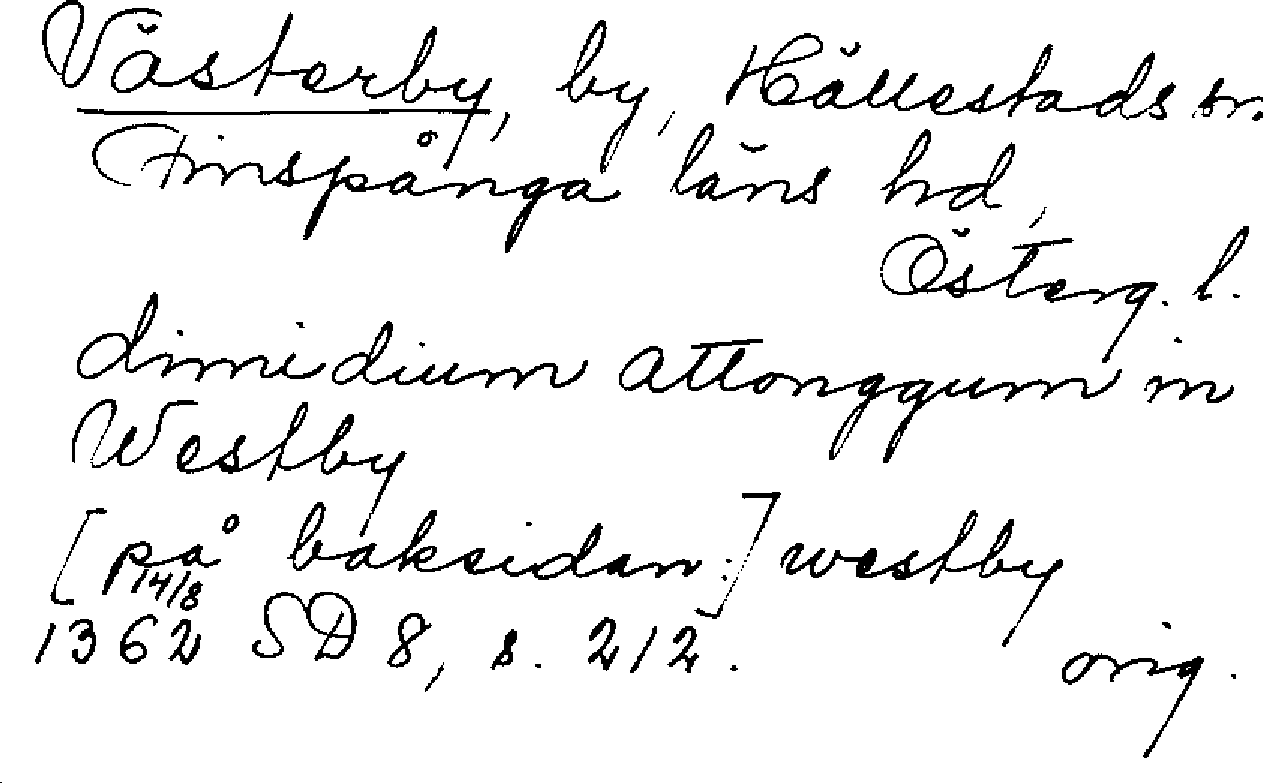 Västerby, by, Hällestads sn.
Finspånga läns hd,
Österg. l.
dimidium attonggum in
Westby
[på baksidan:] westby
14/8
1362 SD 8, s. 212. orig.